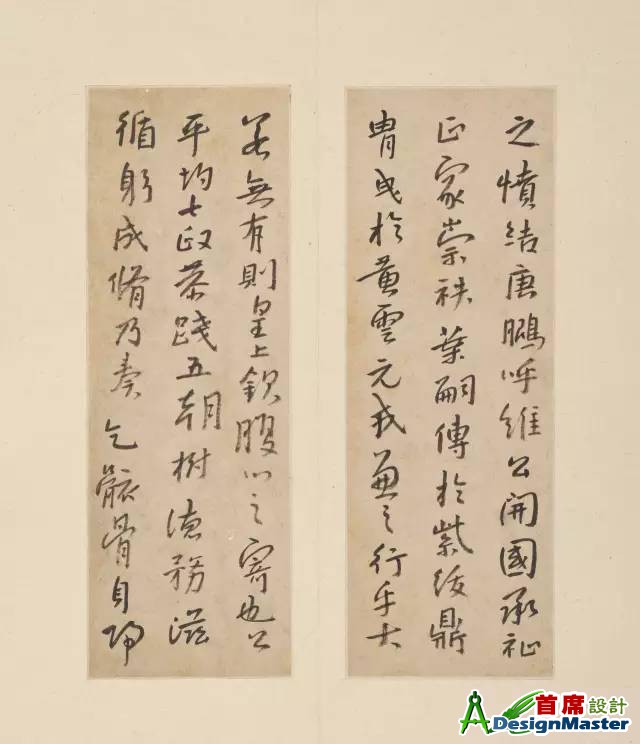 之憤結唐鵬呼維公開國承祉
正家崇秩葉嗣傳於紫綬鼎
胄或於黃雲元戎兼之行乎大
若無有則皇上欽腹心之寄也公
平均七政恭踐五朝樹德務滋
循躬成脩乃奏乞骸骨自歸
首席設計
DesignMaster